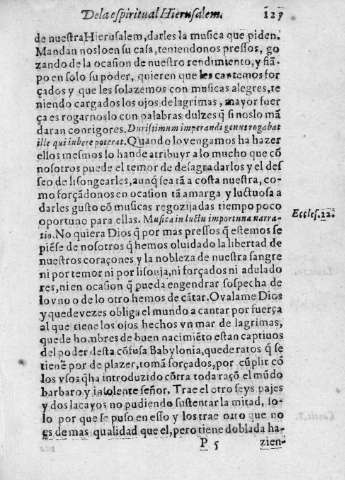 De la espiritual Hierusalem. 127
de nuestra Hierusalem, darles la musica que piden.
Mandan noslo en su casa, teniendonos pressos, go
zando de la ocasiõn de nuestro rendimiento, y fiã
po en solo su poder, quieren que les cantemos for
çados y que les solazemos con musicas alegres, te
niendo cargados los ojos de lagrimas, mayor fuer
ça es rogarnoslo con palabras dulzes q̃ si noslo mã
daran con rigores. Durissimum imperandi genus rogabat
ille qui iubere poterat. Quando lo vengamos ha hazer
ellos mesmos lo hande atribuyr a lo mucho que cõ
nosotros puede el temor de desagradarlos y el des
seo de lisongearles, aunq̃ seará a costa nuestra, co
mo forçãdonos en ocasion tã amarga y luctuosa a
darles gusto cõ musicas regozijadas tiempo poco
oportuno para ellas. Musica in luctu importuna narra-
tio. No quiera Dios q̃ por mas pressos q̃ estemos se
piẽse de nosotros q̃ hemos oluidado la libertad de
nuestros coraçones y la nobleza de nuestra sangre
ni por temor ni por lisonja, ni forçados ni adulado
res, ni en ocasion q̃ pueda engendrar sospecha de
lo vno o de lo otro hemos de cãtar. O valame Dios
y quedevezes obliga el mundo a cantar por fuerça
al que tiene los ojos hechos vn mar de lagrimas,
que de hombres de buen nacimiẽto estan captiuos
del poder desta cõfusa Babylonia, quede ratos q̃ se
tienẽ por de plazer, tomã forçados, por cũplir cõ
los vsos q̃ ha introduzido cõtra toda razõ el mũdo
barbaro y insolente señor. Trae el otro seys pajes
y dos lacayos no pudiendo sustentar la mitad, so-
lo por que se puso en esso y los trae otro que no
es de mas qualidad que el, pero tiene doblada ha-
P 5 zien-
Eccles. 22.